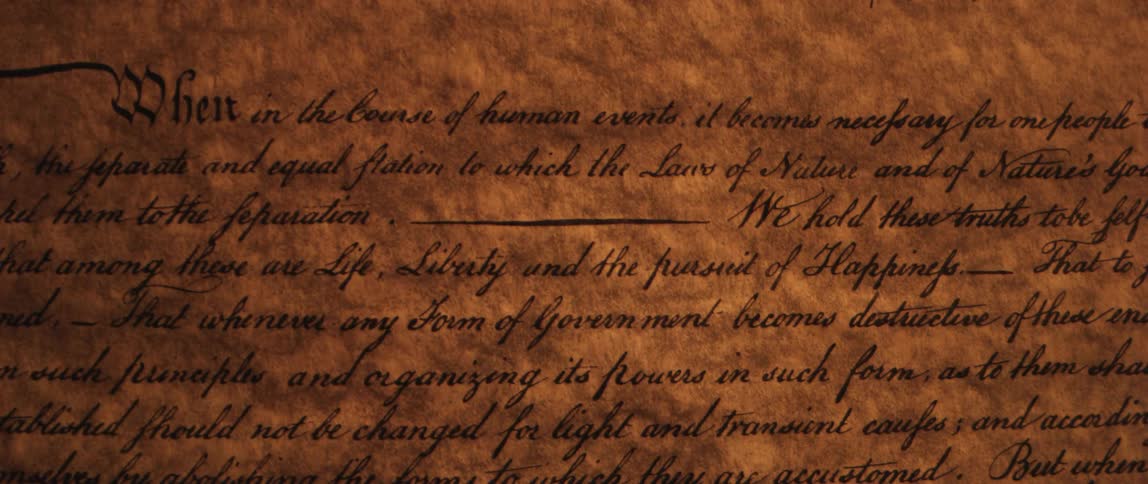 When in the Course of human events, it becomes neceſsary for one people
the ſeparate and equal ſtation to which the Laws of Nature and of Nature's
them to the ſeparation. We hold these truths to be
that among these are Life, Liberty and the pursuit of Happineſs. — That to
— That whenever any Form of Government becomes destructive of these
such principles and organizing its powers in such form, as to them
ſhould not be changed for light and transient cauſes; and
by abolishing the forms to which they are accustomed. But when